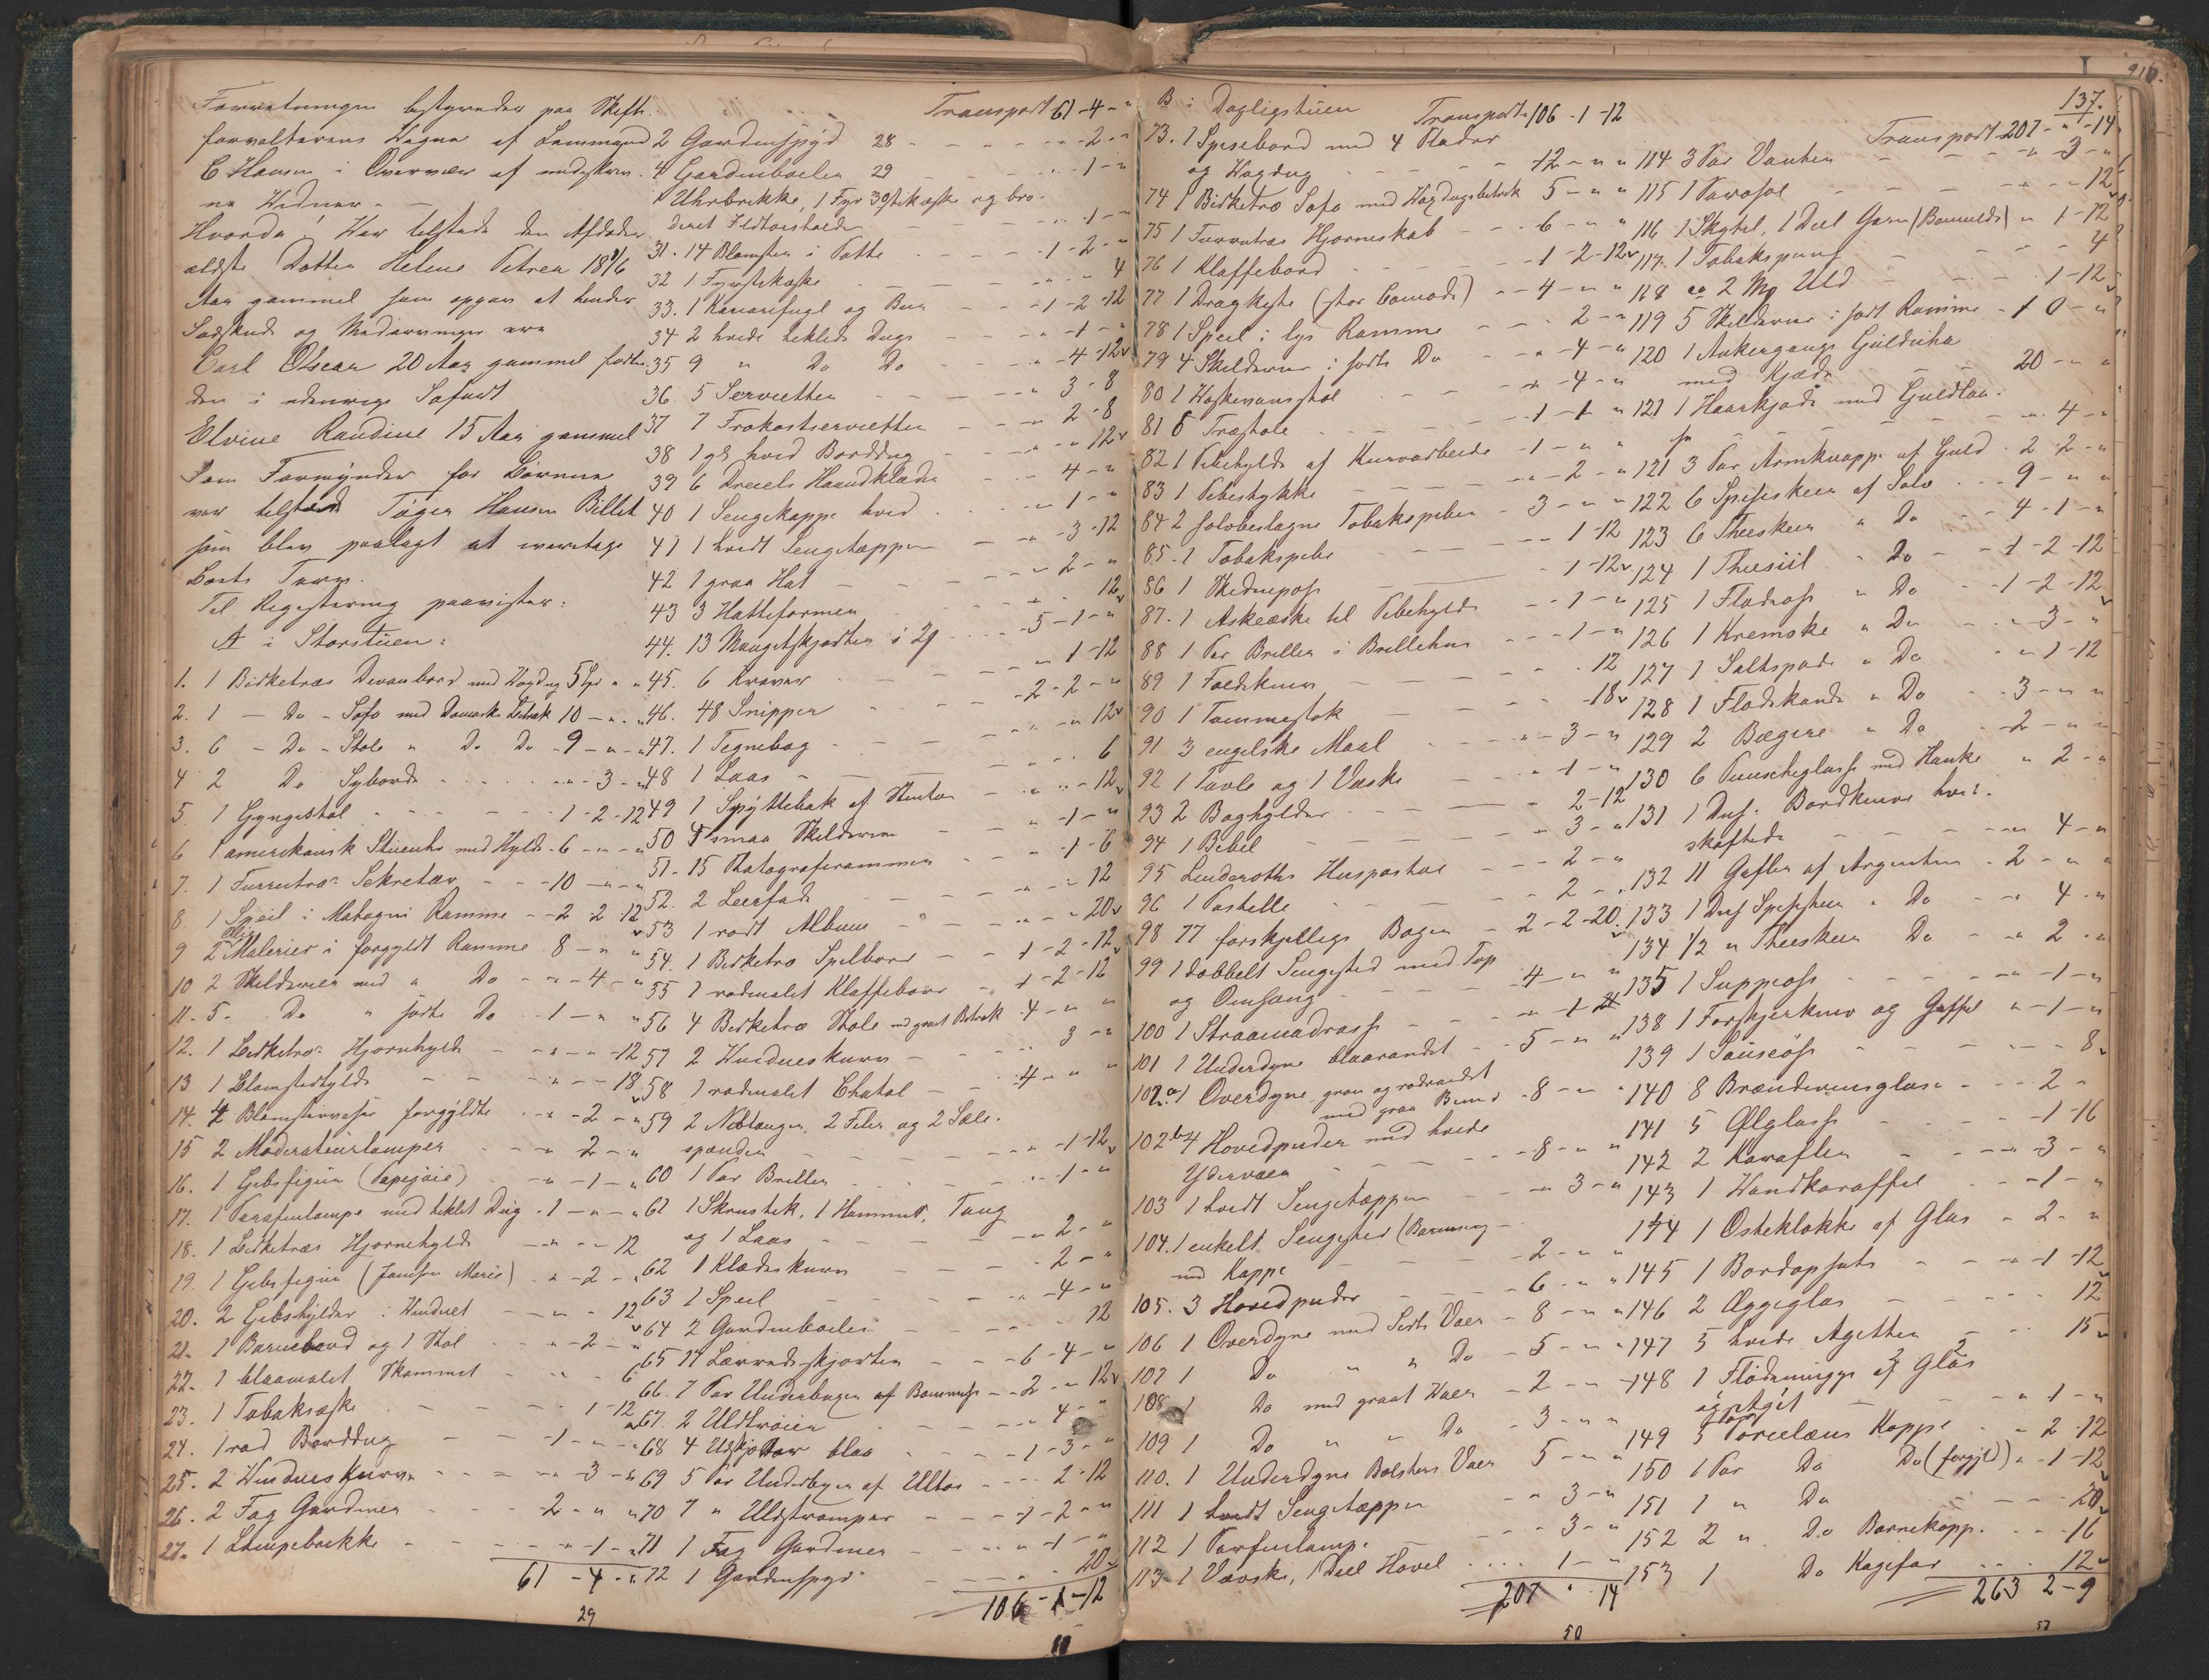 Forretningen bestyredes paa Skifte-
forvalterens Vegne af Lensmand
C Hansen i Overvær af undeskrev-
ne Vidner. -
Hvorda! Var tilstede den Afdødes
ældste Datter Helene Petrea 18 8/6
Aar gammel som opgav at hendes
Sødskende og Medarvinger ere
Carl Oscar 20 Aar gammel forti-
den i udenrigs Søfart
Elvine Randine 15 Aar gammel
Som Formynder for Børnene
var tilstede Tøger Hansen Billet
som blev paalagt at ivaretage
Boets Tarv.
Til Registering paavistes:
A i Storstuen:
1. 1 Birketræs Devanbord med Voxdug 5 Spd " "
2. 1 - Do - Sofa med Damasks Betræk 10 - " - "
3. 6 - Do - Stole " Do Do - 9 - " - "
4 2 Do Syborde - 3 - "
5. 1 Gyngestol 1 - 2 - 12
6 1 amerikansk Stueuhr med Hylde - 6 - " - "
7. 1 Furrutræs Sekretær - - 10 - " - "
8. 1 Speil i Mahogni Ramme - - 2 2 12
9 2 Olie Malerier i forgyldt Ramme 8 - " "
10 2 Skilderier med " Do - " - 4 - "
11. 5. Do " sorte Do - 1 - " "
12. 1 Birketræs Hjørnehylde - " - " - 12
13 1 Blomsterhylde - " - - 18
14. 4 Blomstervaser forgyldte - " - 2 - "
15 2 Moderateurlamper - " 2 - "
16. 1 Gibsfigur (Papegøie) - " - 1 - "
17. 1 Parafinlampe med heklet Dug - 1 - " - "
18. 1 Birketræs Hjørnehylde - " - - 12
19. 1 Gibsfigur (Jomfru Marie) - " - 2 - "
20. 2 Gibshylder i Vinduet - " - 12
21. 1 Barnebord og 1 Stol - " - 2 - "
22. 1 blaamalet Skammel - " 6
23. 1 Tobaksæske 1 - 12
24. 1 rød Borddug - 1 - "
25. 2 Vindues Kurve - " - 3 - "
26. 2 Fag Gardiner 2 - " "
27. 1 Lampebrikke - " - 1 - "
61 - 4 - "
29
Transport 61 - 4 - "
2 Gardinspyd 28 - 2 - "
4 Gardinbøiler 29 - 1 - "
1 Uhrbrikke, 1 Fyrstikæske og bro-
deret Ildtøiholder - 1 - "
31. 14 Blomster i Potte - 1 - 2 - "
32 1 Fyrstikæske - " - 4
33. 1 Kanarifugl og Bur - 1 - 2 - 12
34 2 hvide heklede Duge - 1 - "
35 9 " Do Do - " - 4 - 12
36. 5 Servietter - " 3 - 8
37 7 Frokostservietter - " 2 - 8
38 1 gl. hvid Borddug - " 12
39 6 Dreiels Haandklæder 4 - "
40 1 Sengekappe hvid 1 - "
41 1 hvidt Sengetæppe - " - 3 - 12
42 1 graa Hat - 2 - "
43 3 Hatteformer 12
44. 13 Mangetskjorter i 2 5 - 1 - "
45. 6 Kraver - " 1 - 12
46. 48 Snipper - 2 - 2 - "
47. 1 Tegnebog - " - " 12
48 1 Laas 6
49 1 Spyttebak af Stentøi - " - " - 12
50 4 smaa Skilderier - " - 1 - "
51. 15 Photograferammer - 1 - 6
52. 2 Leerfade 12
53 1 rødt Album - " - 20
54. 1 Birketræ Spilbord - 1 - 2 - 12
55 1 rødmalet Klaffebord - 1 - 2 - 12
56 4 Birketræ Stole med graat Betræk - 4 - " "
57 2 Vindueskurve - 3 - "
58 1 rødmalet Chatol - 4 - " "
59 2 Nebtænger, 2 Filer og 2 Sæle-
spænder - - 1 - 12
60 1 Par Briller - 1 - "
61 1 Skrustik, 1 Hammer, Tang
og 1 Laas - " 2 - "
62 1 Klædeskurv - 2 - "
63 1 Speil - 4 - "
64 2 Gardinbøiler 12
65 14 Lærredsskjorter - - 6 - 4 - "
66. 7 Par Underbuxer af Bommuld - - 2 - " 12
67. 2 Uldtrøier - " 4 - "
68 4 Uldskjorter blaa - - 1 - 3 - "
69 5 Par Underbuxer af Uldtøi - - 2 - 12
70 7 " Uldstrømper - - 1 - 2 - "
71 1 Fag Gardiner - " 1 - "
72 1 Gardinspyd 20
106 - 1 - 12
B i Dagligstuen
Transport 106 - 1 - 12
73. 1 Spisebord med 4 Plader
og Voxdug - 12 - " "
74 1 Birketræ Sofa med Voxdugsbetræk 5 - " "
75 1 Furrutræs Hjørneskab - 6 - " "
76 1 Klaffebord - 1 - 2 - 12
77 1 Dragkiste (stor Comode) - - 4 - " "
78 1 Speil i lys Ramme - - 2 - "
79 4 Skilderier i sorte Do - " - 4 - "
80 1 Voxkenansstol - " - 4 - "
81 6 Træstole - 1 - 1 - "
82 1 Pibehylde af Kurvarbeide - 1 - " "
83 1 Pibestykke - - 2 - "
84 2 sølvbeslagne Tobakspiber - 3 - " "
85. 1 Tobakspibe - - 1 - 12
86 1 Skindpose - 1 - 12
87. 1 Askeæske til Pibehylde - - 1 - "
88 1 Par Briller i Brillehus - - 1 - "
89 1 Foldekniv 12
90 1 Tommestok - 18
91 3 engelske Maal - " - 3 - "
92 1 Tavle og 1 Vaske - " 1 - "
93 2 Boghylder - " 2 - 12
94 1 Bibel - " 3 - "
95 Linderoths Huspostil - - 2 - "
96 1 Postille - 2 - "
98 77 forskjellige Bøger - 2 - 2 - 20
99 1 dobbelt Sengested med Top
og Omhæng - 4 - " "
100 1 Straamadrasse - " - 1
101 1 Underdyne blaarandet - 5 - " "
102a 1 Overdyne graa og rødrandet
med graa Bund - 8 - " "
102b 4 Hovedpuder med hvide
Yderwaer - 8 - " "
103 1 hvidt Sengetæppe - " 3 - "
104. 1 enkelt Sengested (Barneseng
med Kappe - 2 - " "
105. 3 Hovedpuder - 6 - " "
106 1 Overdyne med Sirts Vaer - 8 - " "
107 1 Do " " Do - 5 - " "
108 1 Do med graat Vaer - 2 - " "
109 1 Do " " Do - 3 - " "
110. 1 Underdyne Bolsters Vaer 5 - " "
111 1 hvidt Sengetæppe - " 3 - "
112 1 Parfinlampe - 3 - "
113. 1 Vævske, 1 Deel Høvel - 1 - "
207 " 14
50
137.
Transport 207 - " - 14
114 3 Par Vanter - " - 3 - "
115 1 Parasol - " - 12
116 1 Skytel, 1 Deel Garn (Bomulds) " 1 - 12
117 1 Tobakspung - 4
118 ca 2 Mg Uld 1 - 12
119 5 Skilderier i sort Ramme - 1 0 - "
120 1 Ankergangs Guldur
med Kjæde 20 - " "
121 1 Haarkjæde med Guldlaa-
se - " 4 - "
121 3 Par Armknappe af Guld - 2 - 2 - "
122 6 Spiseskeer af Sølv - 9 - " "
123 6 Theeskeer " Do - - 4 - 1 - "
124 1 Theesiil " Do - - 1 - 2 - 12
125 1 Flødeøse " Do - - 1 - 2 - 12
126 1 Kremske " Do - - 3 - "
127 1 Saltspade " Do - " 1 - 12
128 1 Flødekande " Do - 3 - " "
129 2 Bægere " Do - 2 - " "
130 6 Punscheglasse med Hanke " 2 - "
131 1 Dus. Bordknive hvid-
skaftede - " 4 - "
132 11 Gafler af Argentin - 2 - " "
133 1 Dus Spiseskeer " Do - " 4 - "
134 1/2 " Theeskeer Do - " 2 - "
135 1 Suppeøse - " - 1 - "
138 1 Forskjerkniv og Gaffel " - 1 - "
139 1 Sauseøse - 8
140 8 Brændevinsglase - 2 -
141 5 Ølglasse - 1 - 16
142 2 Karafler - " - 3 - "
143 1 Vandkaraffel - 1 - "
144 1 Osteklokke af Glas - 2 - "
145 1 Bordopsats - " - 1 - 12
146 2 Æggeglas 12
147 5 hvide Agetter 15
148 1 Flødemugge af Glas
og Agit - " - 1 - "
149 5 Par Porcelæns Koppe - " 2 - 12
150 1 Par Do Do (forgyld) " - 1 - 12
151 1 " Do 20
152 2 " Do Barnekopp. - 16
153 1 Do Kagefad 12
263 2 - 9